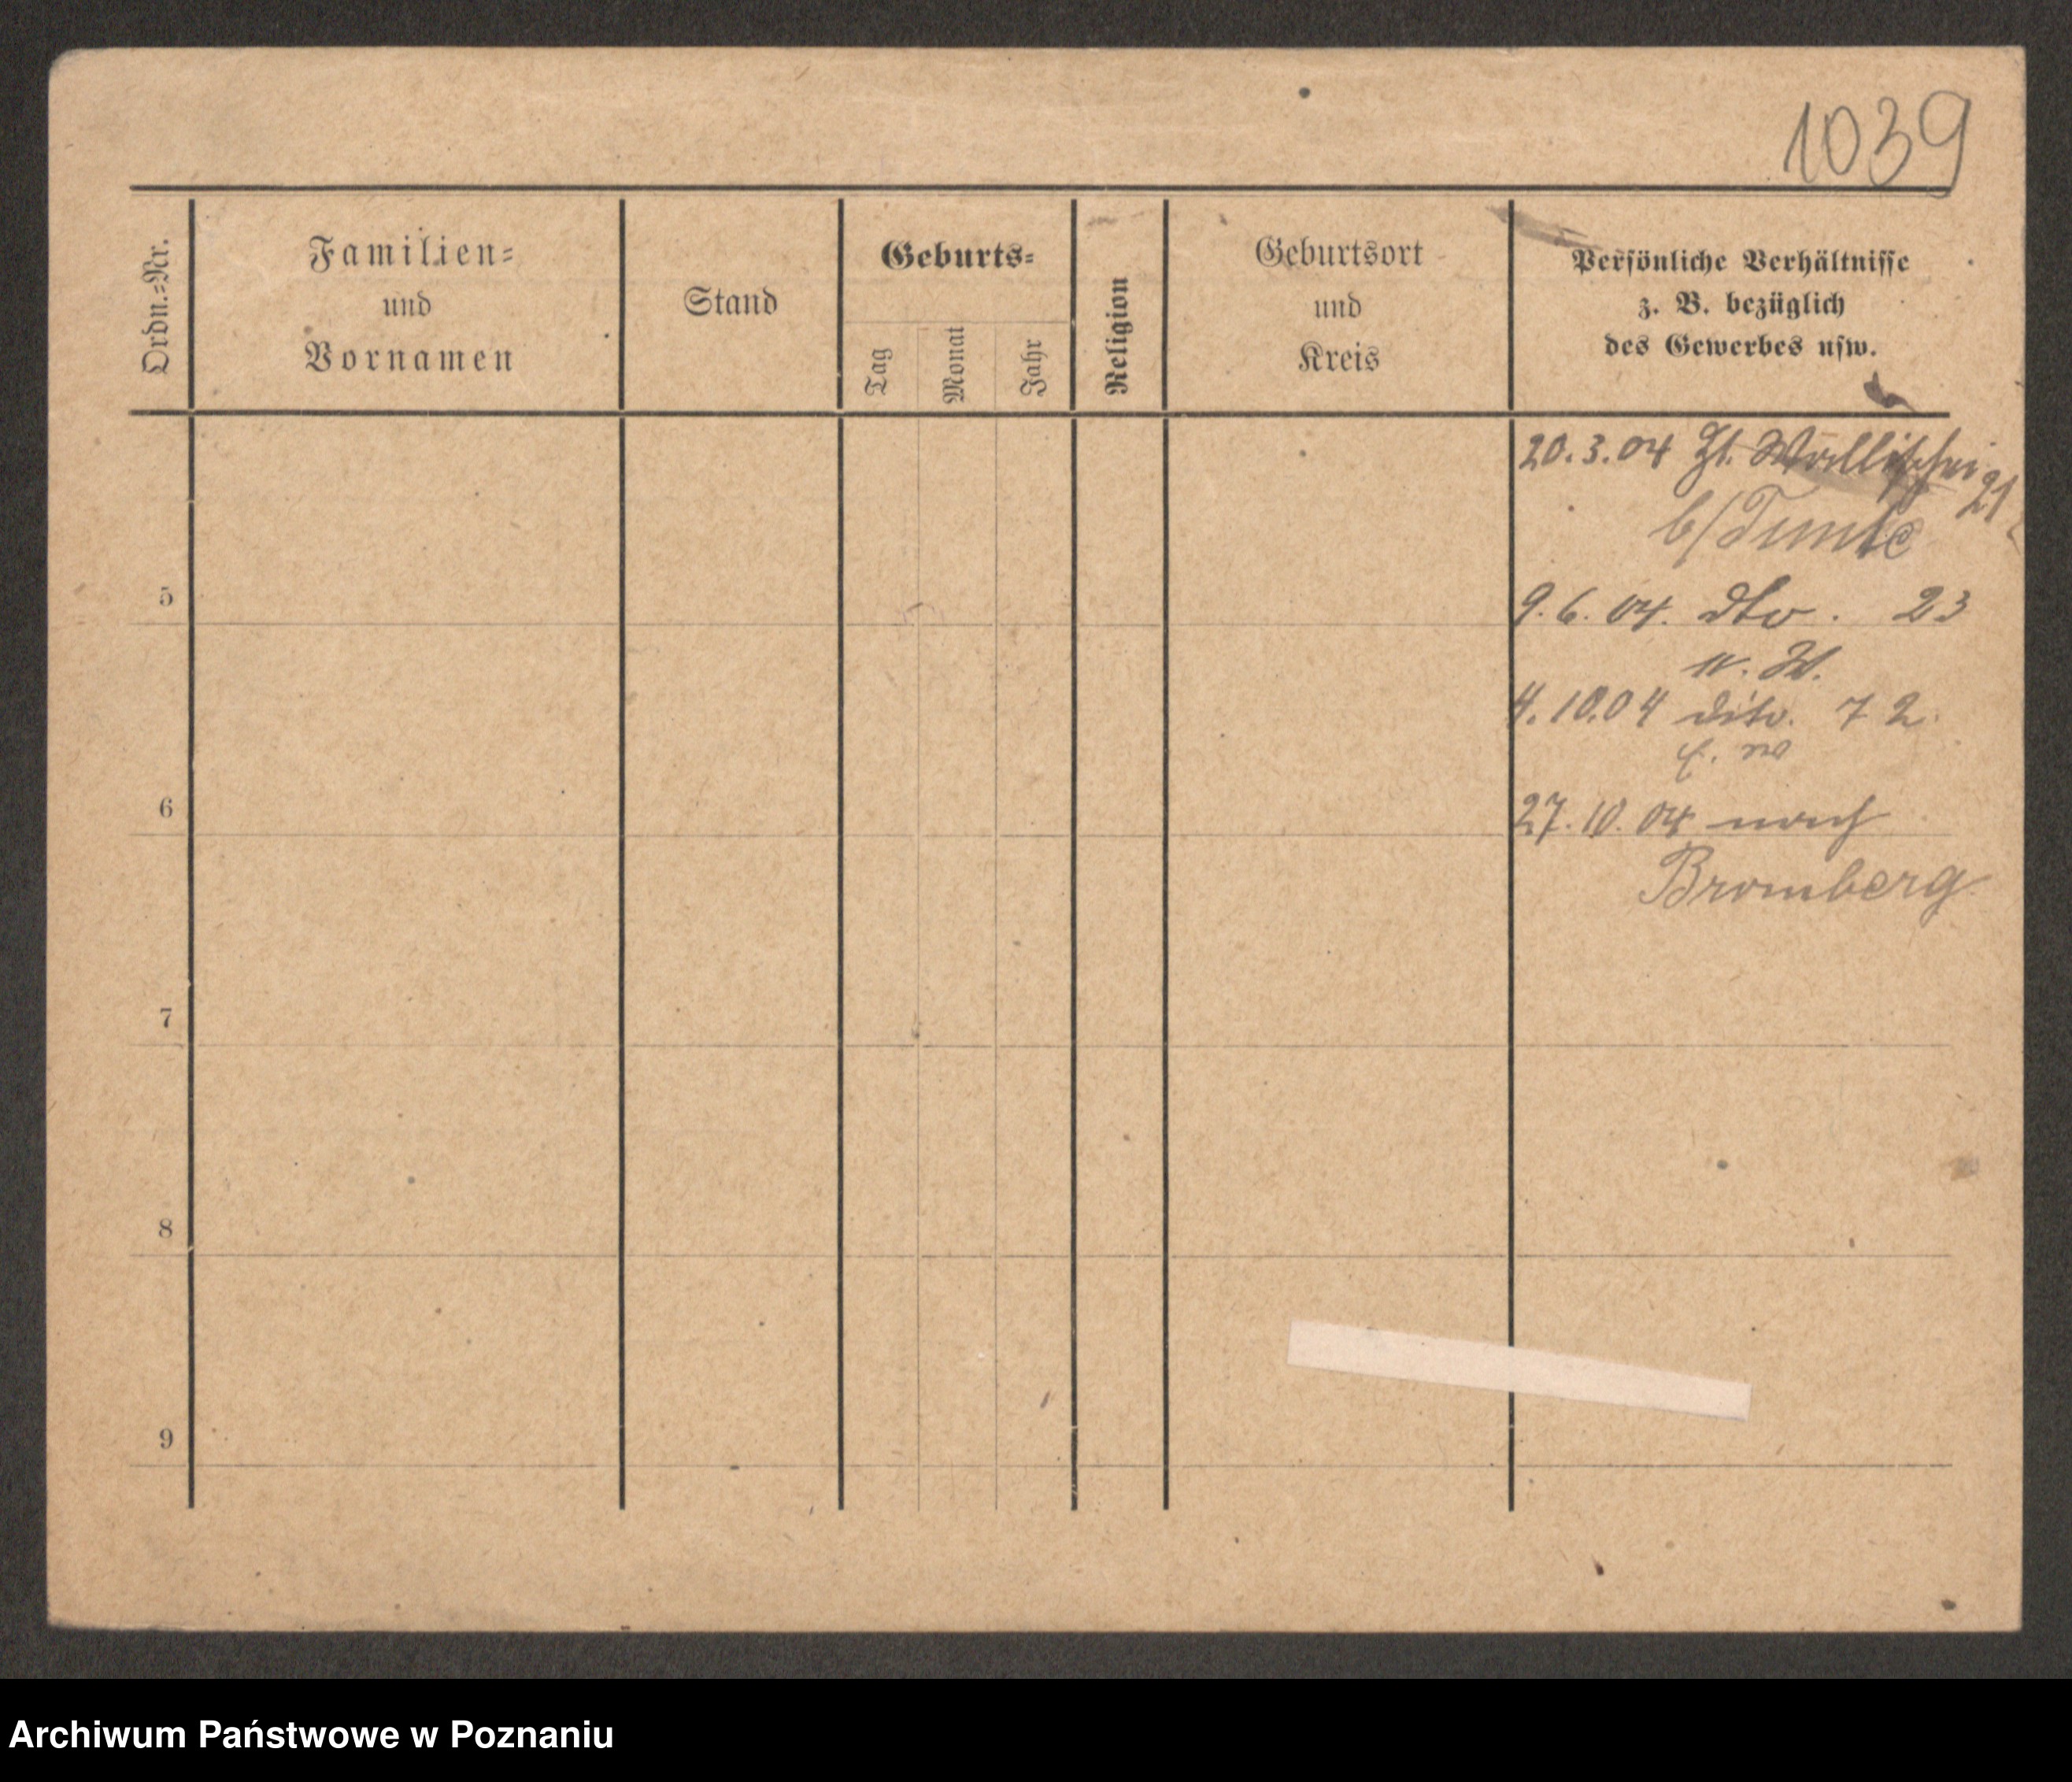 1039
Ordn.-Nr.
Familien-
und
Vornamen
Stand
Geburts-
Tag
Monat
Jahr
Religion
Geburtsort
und
Kreis
Persönliche Verhältnisse
z. B. bezüglich
des Gewerbes usw.
20.3.04 Wallischei 21
b/
5
9.6.04. dto. 23
4.10.04 dito. 72
6
27.10.04 nach
Bromberg
7
8
9
Archiwum Państwowe w Poznaniu